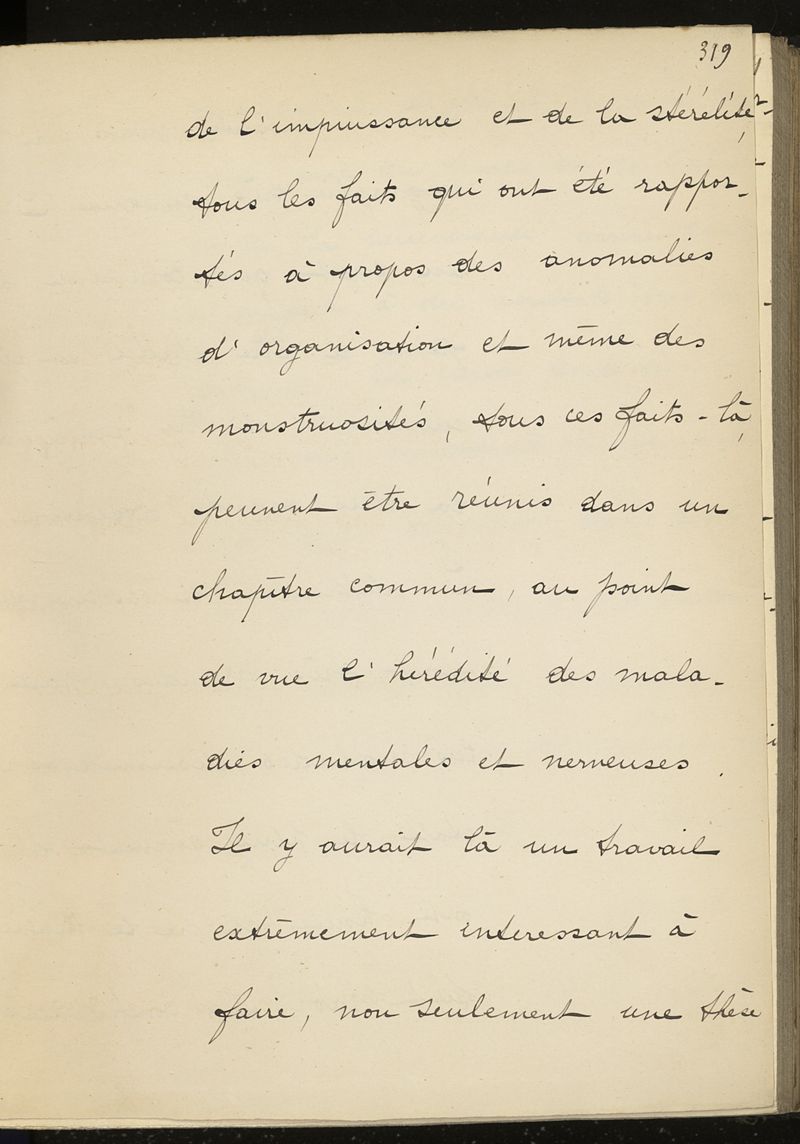 319
de l'impuissance et de la stérélité,
tous les faits qui ont été rappor-
tés à propos des anomalies
d'organisation et même des
monstruosités, tous ces faits-là,
peuvent être réunis dans un
chapitre commun, au point
de vue l'hérédité des mala-
dies mentales et nerveuses.
Il y aurait là un travail
extrêmement interessant à
faire, non seulement une thèse